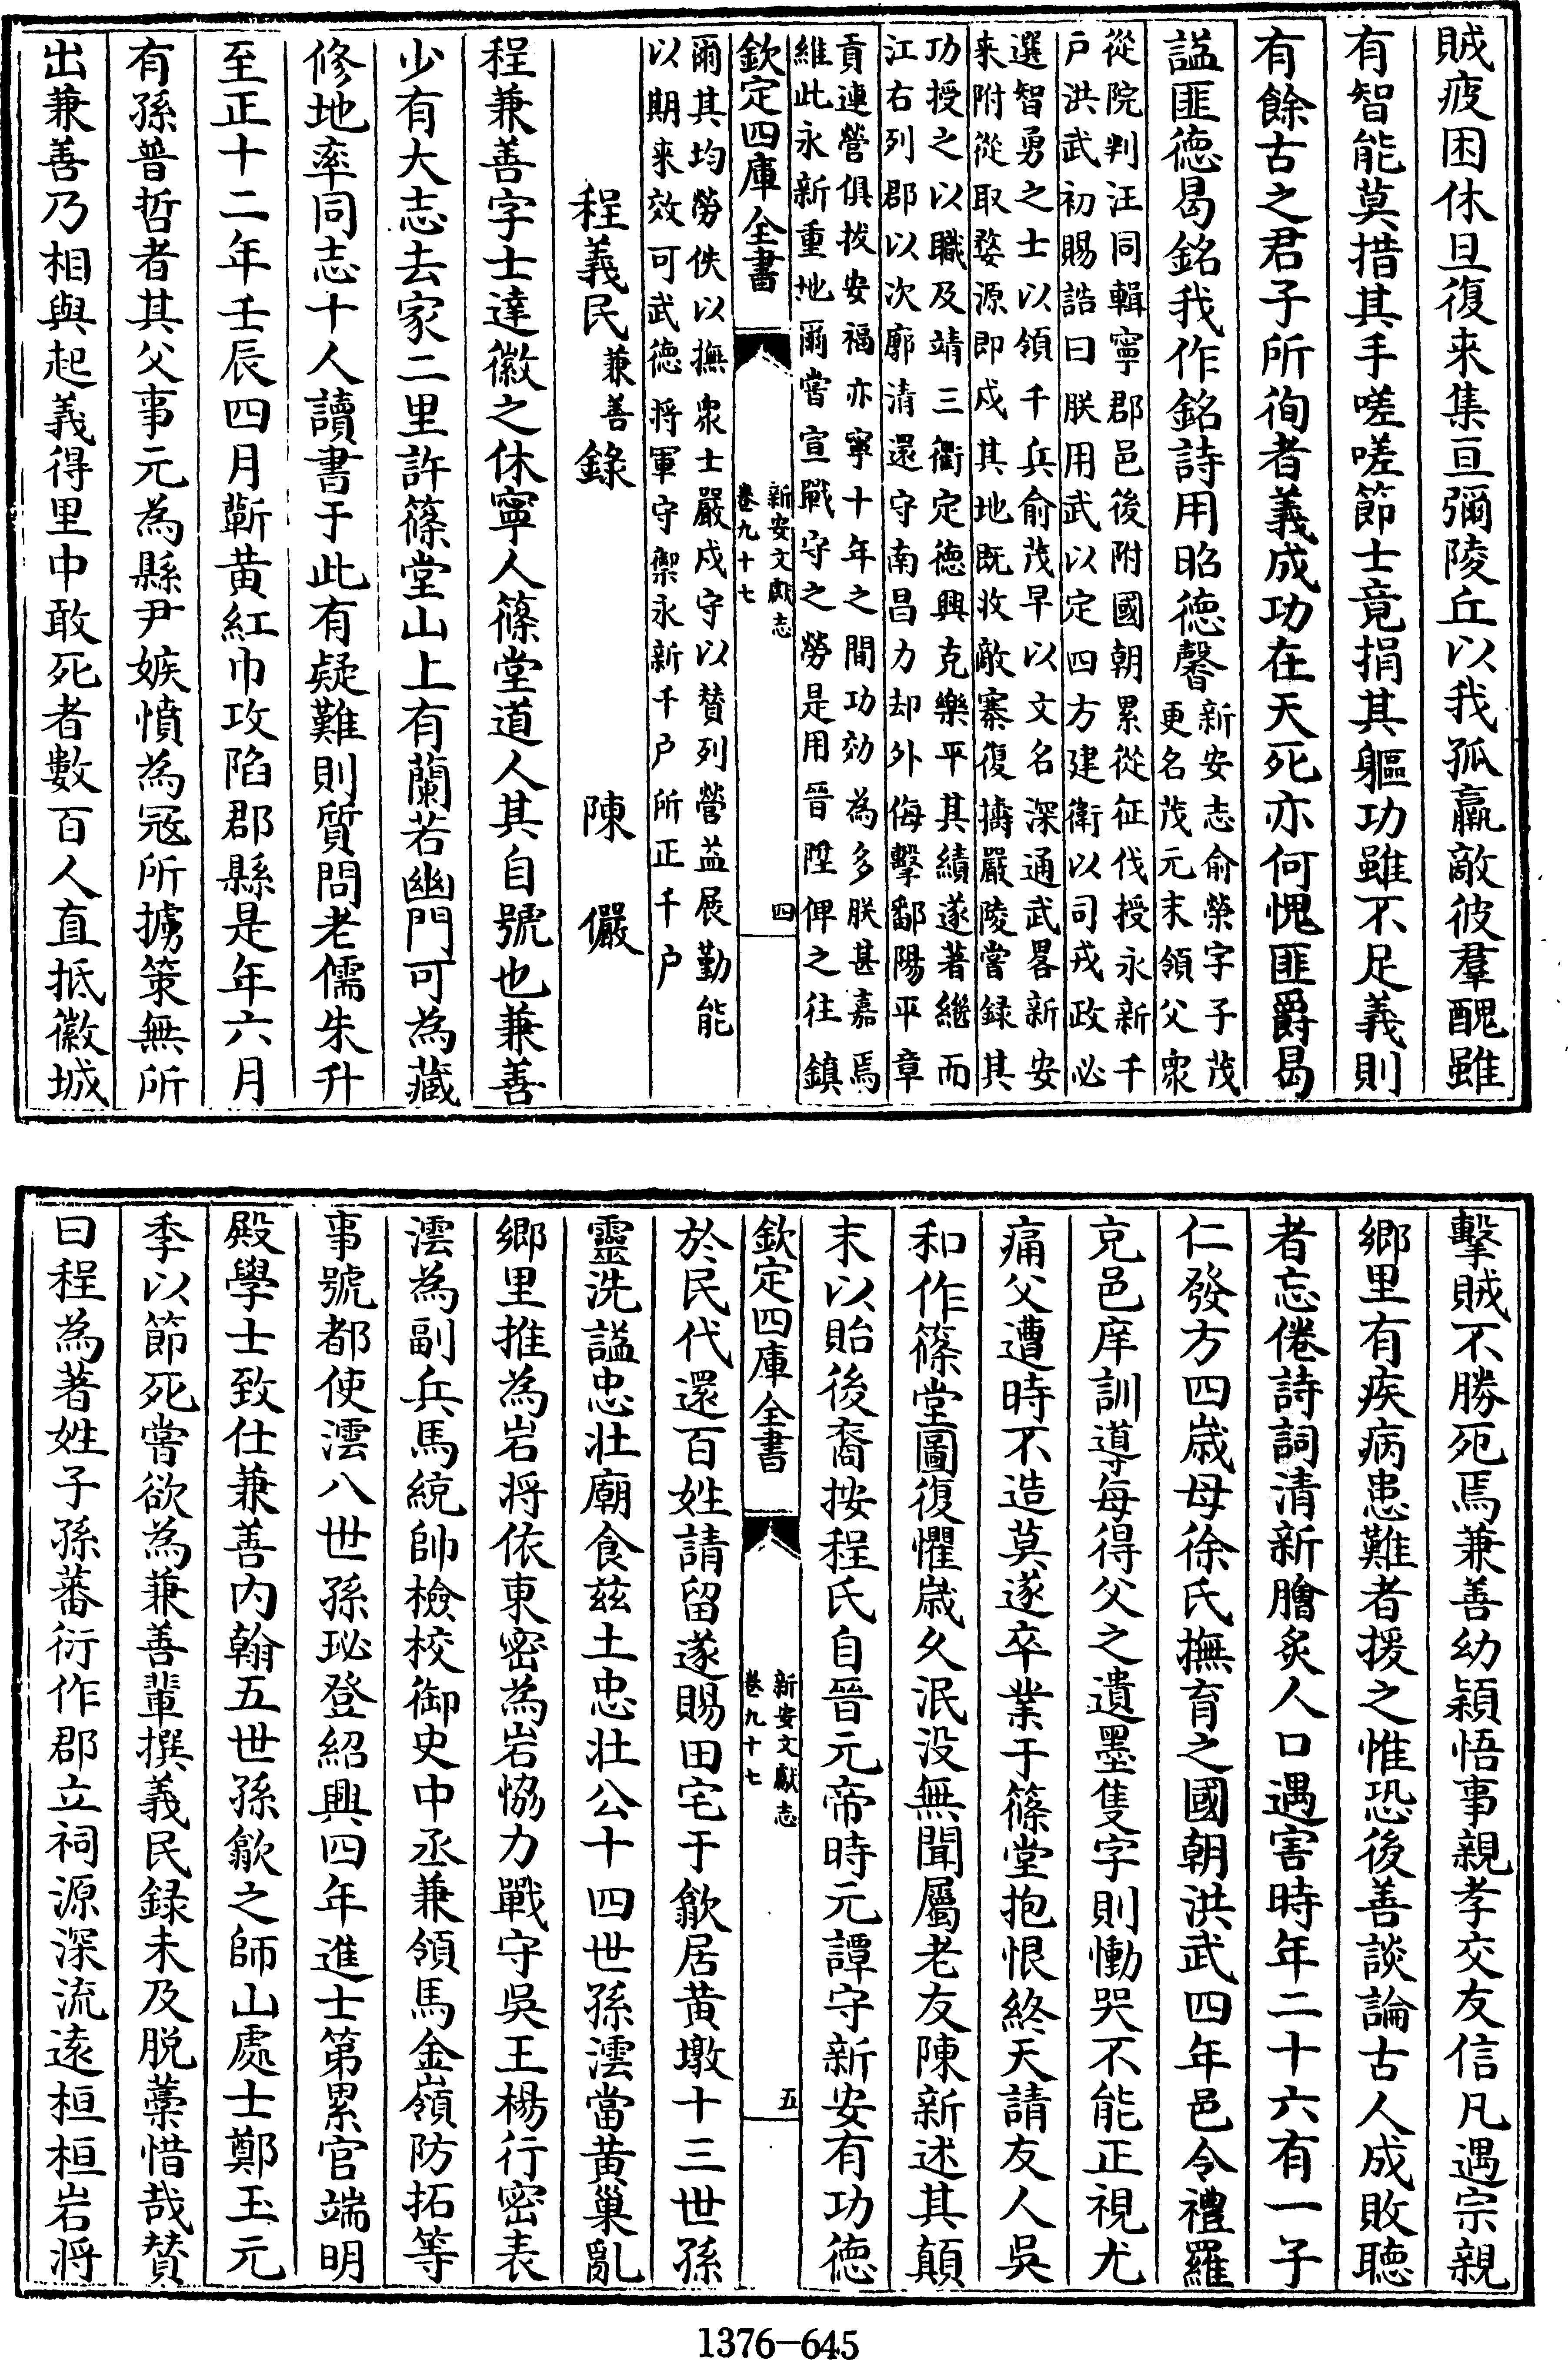 賊疲困休旦復来集亘彌陵丘以我孤羸敵彼羣醜雖
有智能莫措其手嗟嗟節士竟捐其軀功雖不足義則
有餘古之君子所徇者義成功在天死亦何愧匪爵曷
諡匪徳曷銘我作銘詩用昭徳馨新安志俞榮字子茂
更名茂元末領父衆
從院判汪同輯寧郡邑後附國朝累從征伐授永新千
戸洪武初賜誥曰朕用武以定四方建衛以司戎政必
選智勇之士以領千兵俞茂早以文名深通武畧新安
来附從取婺源即戍其地既收敵寨復擣嚴陵嘗録其
功授之以職及靖三衢定徳興克樂平其績遂著繼而
江右列郡以次廓清還守南昌力却外侮擊鄱陽平章
貢連營俱抜安福亦寧十年之間功効為多朕甚嘉焉
維此永新重地爾嘗宣戰守之勞是用晉陞俾之往鎮
欽定四庫全書
新安文獻志
卷九十七
四
爾其均勞佚以撫衆士嚴戍守以賛列營益展勤能
以期来效可武徳将軍守禦永新千户所正千户
程義民兼善錄 陳儼
程兼善字士達徽之休寧人篠堂道人其自號也兼善
少有大志去家二里許篠堂山上有蘭若幽門可為藏
修地率同志十人讀書于此有疑難則質問老儒朱升
至正十二年壬辰四月蘄黄紅巾攻陷郡縣是年六月
有孫普哲者其父事元為縣尹嫉憤為冦所擄策無所
出兼善乃相與起義得里中敢死者數百人直抵徽城
擊賊不勝死焉兼善幼穎悟事親孝交友信凡遇宗親
鄉里有疾病患難者援之惟恐後善談論古人成敗聴
者忘倦詩詞清新膾炙人口遇害時年二十六有一子
仁發方四歳母徐氏撫育之國朝洪武四年邑令禮羅
克邑庠訓導每得父之遺墨隻字則慟哭不能正視尤
痛父遭時不造莫遂卒業于篠堂抱恨終天請友人吳
和作篠堂圖復懼歳久泯没無聞屬老友陳新述其顛
末以貽後裔按程氏自晉元帝時元譚守新安有功徳
欽定四庫全書
新安文獻志
卷九十七
五
於民代還百姓請留遂賜田宅于歙居黄墩十三世孫
靈洗謚忠壯廟食兹土忠壯公十四世孫澐當黄巢亂
鄉里推為岩将依東密為岩恊力戰守吳王楊行密表
澐為副兵馬統帥檢校御史中丞兼領馬金嶺防拓等
事號都使澐八世孫珌登紹興四年進士第累官端明
殿學士致仕兼善内翰五世孫歙之師山處士鄭玉元
季以節死嘗欲為兼善輩撰義民録未及脱藁惜哉賛
曰程為著姓子孫蕃衍作郡立祠源深流逺桓桓岩將
1376-645